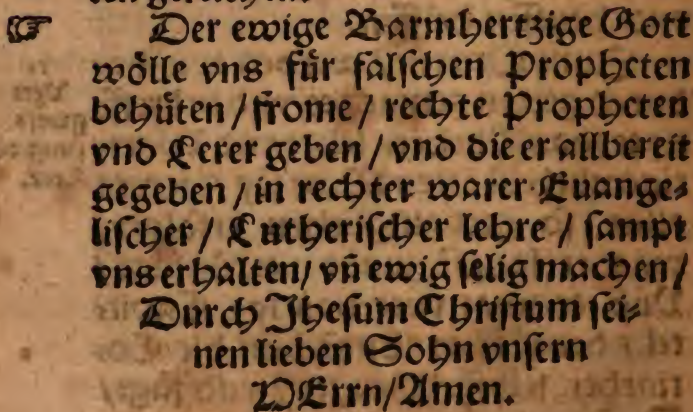 ☞ Der ewige Barmhertzige Gott
wölle vns für falschen Propheten
behüten / frome / rechte Propheten
vnd Lerer geben / vnd die er allbereit
gegeben / in rechter warer Euange⸗
lischer / Lutherischer lehre / sampt
vns erhalten / vñ ewig selig machen /
Durch Jhesum Christum sei⸗
nen lieben Sohn vnsern
HErrn / Amen.